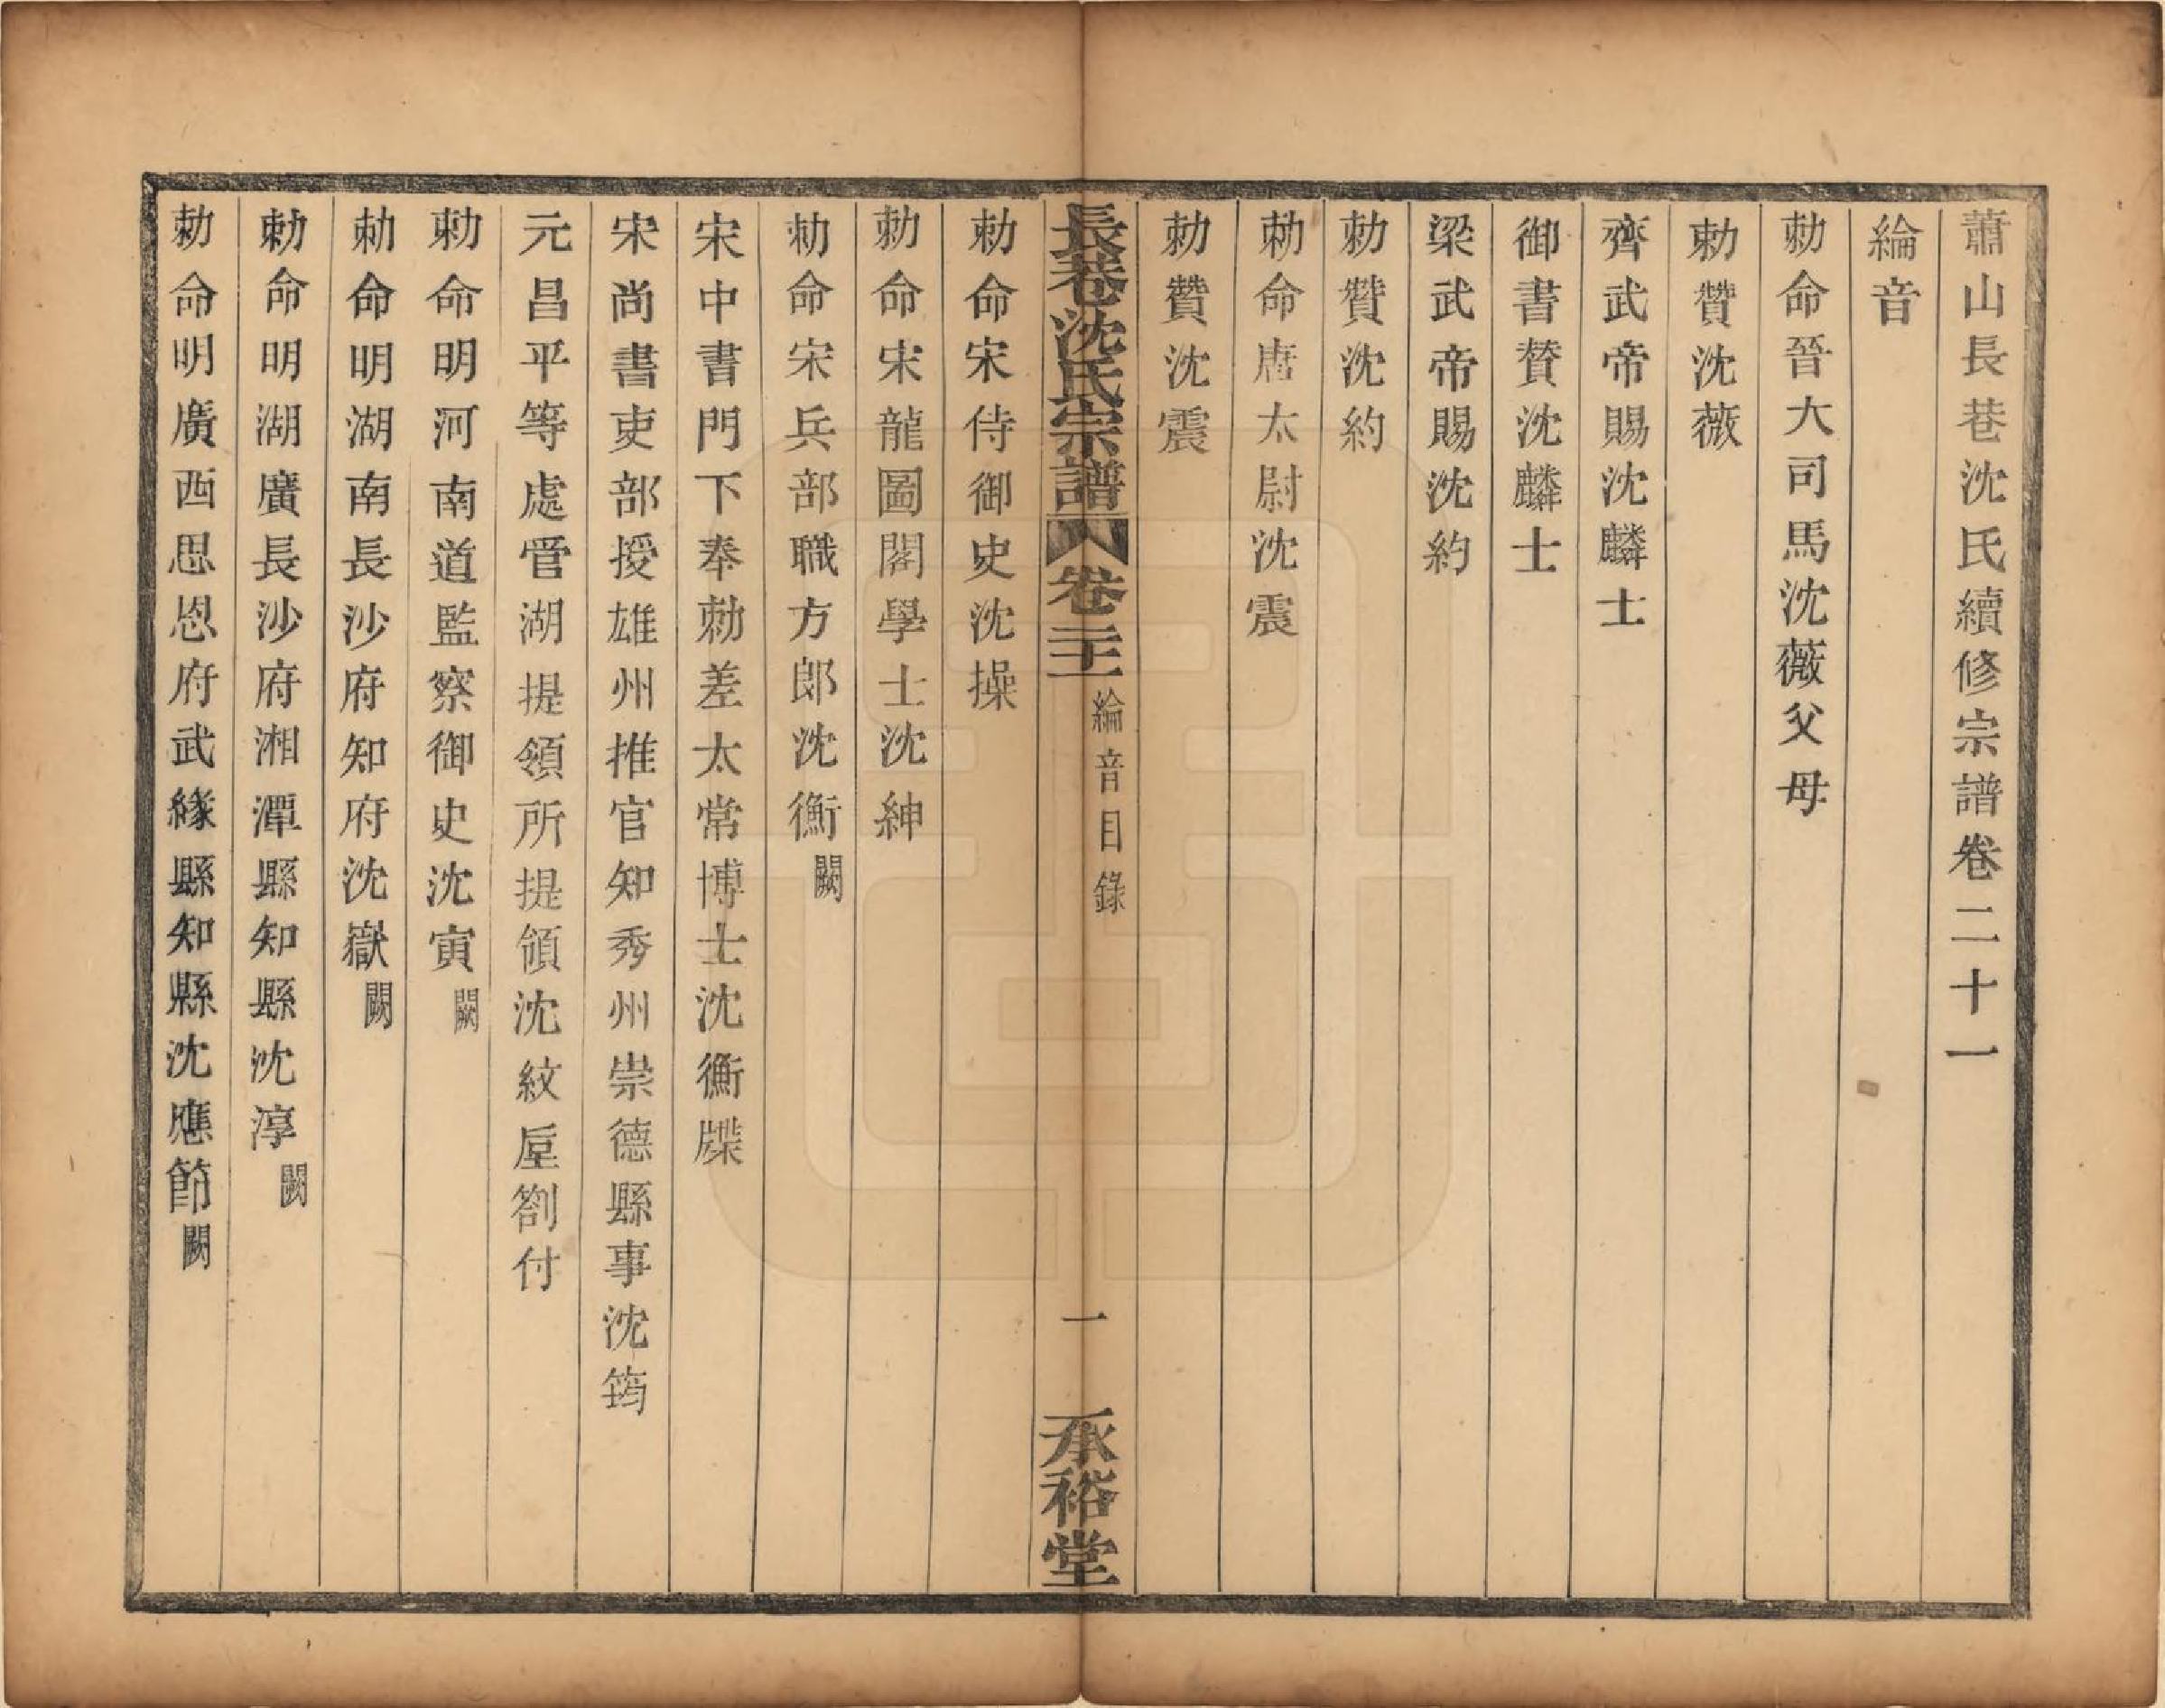 蕭山長巷沈氏續修宗譜卷二十一
綸音
勅命晉大司馬沈薇父母
勅贊沈薇
齊武帝賜沈麟士
御書賛沈麟士
梁武帝賜沈約
勅贊沈約
勅命唐太尉沈震
勅贊沈震
長巷沈氏宗譜 卷二十一 綸音目錄 一 承裕堂
勅命宋侍御史沈操
勅命宋龍圖閣學士沈紳
勅命宋兵部職方郎沈衡闕
宋中書門下奉勅差太常博士沈衡牒
宋尚書吏部授雄州推官知秀州崇德縣事沈筠
元昌平等處管湖提領所提領沈紋垕劄付
勅命明河南道監察御史沈寅闕
勅命明湖南長沙府知府沈嶽闕
勅命明湖廣長沙府湘潭縣知縣沈淳闕
勅命明廣西思恩府武緣縣知縣沈應節闕